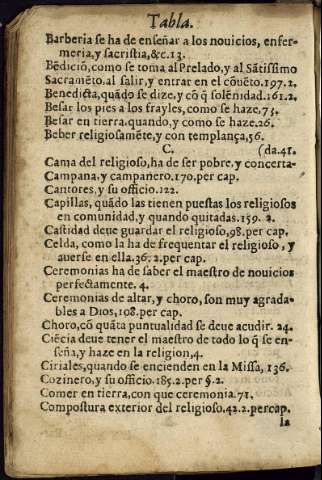 Tabla.
Barberia se ha de enseñar a los nouicios, enfer-
meria, y sacristia, &c. 13.
Bẽdiciõ, como se toma al Prelado, y al Sãtissimo
Sacramẽto. al salir, y entrar en el cõuẽto. 197. 2.
Benedicta, quãdo se dize, y cõ q̃ solẽnidad. 161. 2.
Besar los pies a los frayles, como se haze. 73.
Besar en tierra. quando, y como se haze. 26.
Beber religiosamẽte, y con templança, 56.
C. (da. 41.
Cama del religioso, ha de ser pobre. y concerta-
Campana, y campanero. 170. per cap.
Cantores, y su officio. 122.
Capillas, quãdo las tienen puestas los religiosos
en comunidad, y quando quitadas. 159. 2.
Castidad deue guardar el religioso, 98. per cap.
Celda, como la ha de frequentar el religioso, y
auerse en ella. 36. 2. per cap.
Ceremonias ha de saber el maestro de nouicios
perfectamente. 4.
Ceremonias de altar, y choro, son muy agrada-
bles a Dios, 108. per cap.
Choro, cõ quãta puntualidad se deue acudir. 24.
Ciẽcia deue tener el maestro de todo lo q̃ se en-
seña, y haze en la religion, 4.
Ciriales, quando se encienden en la Missa, 136.
Cozinero, y su officio. 185. 2. per §. 2.
Comer en tierra, con que ceremonia. 71.
Compostura exterior del religioso. 42. 2. per cap.
la